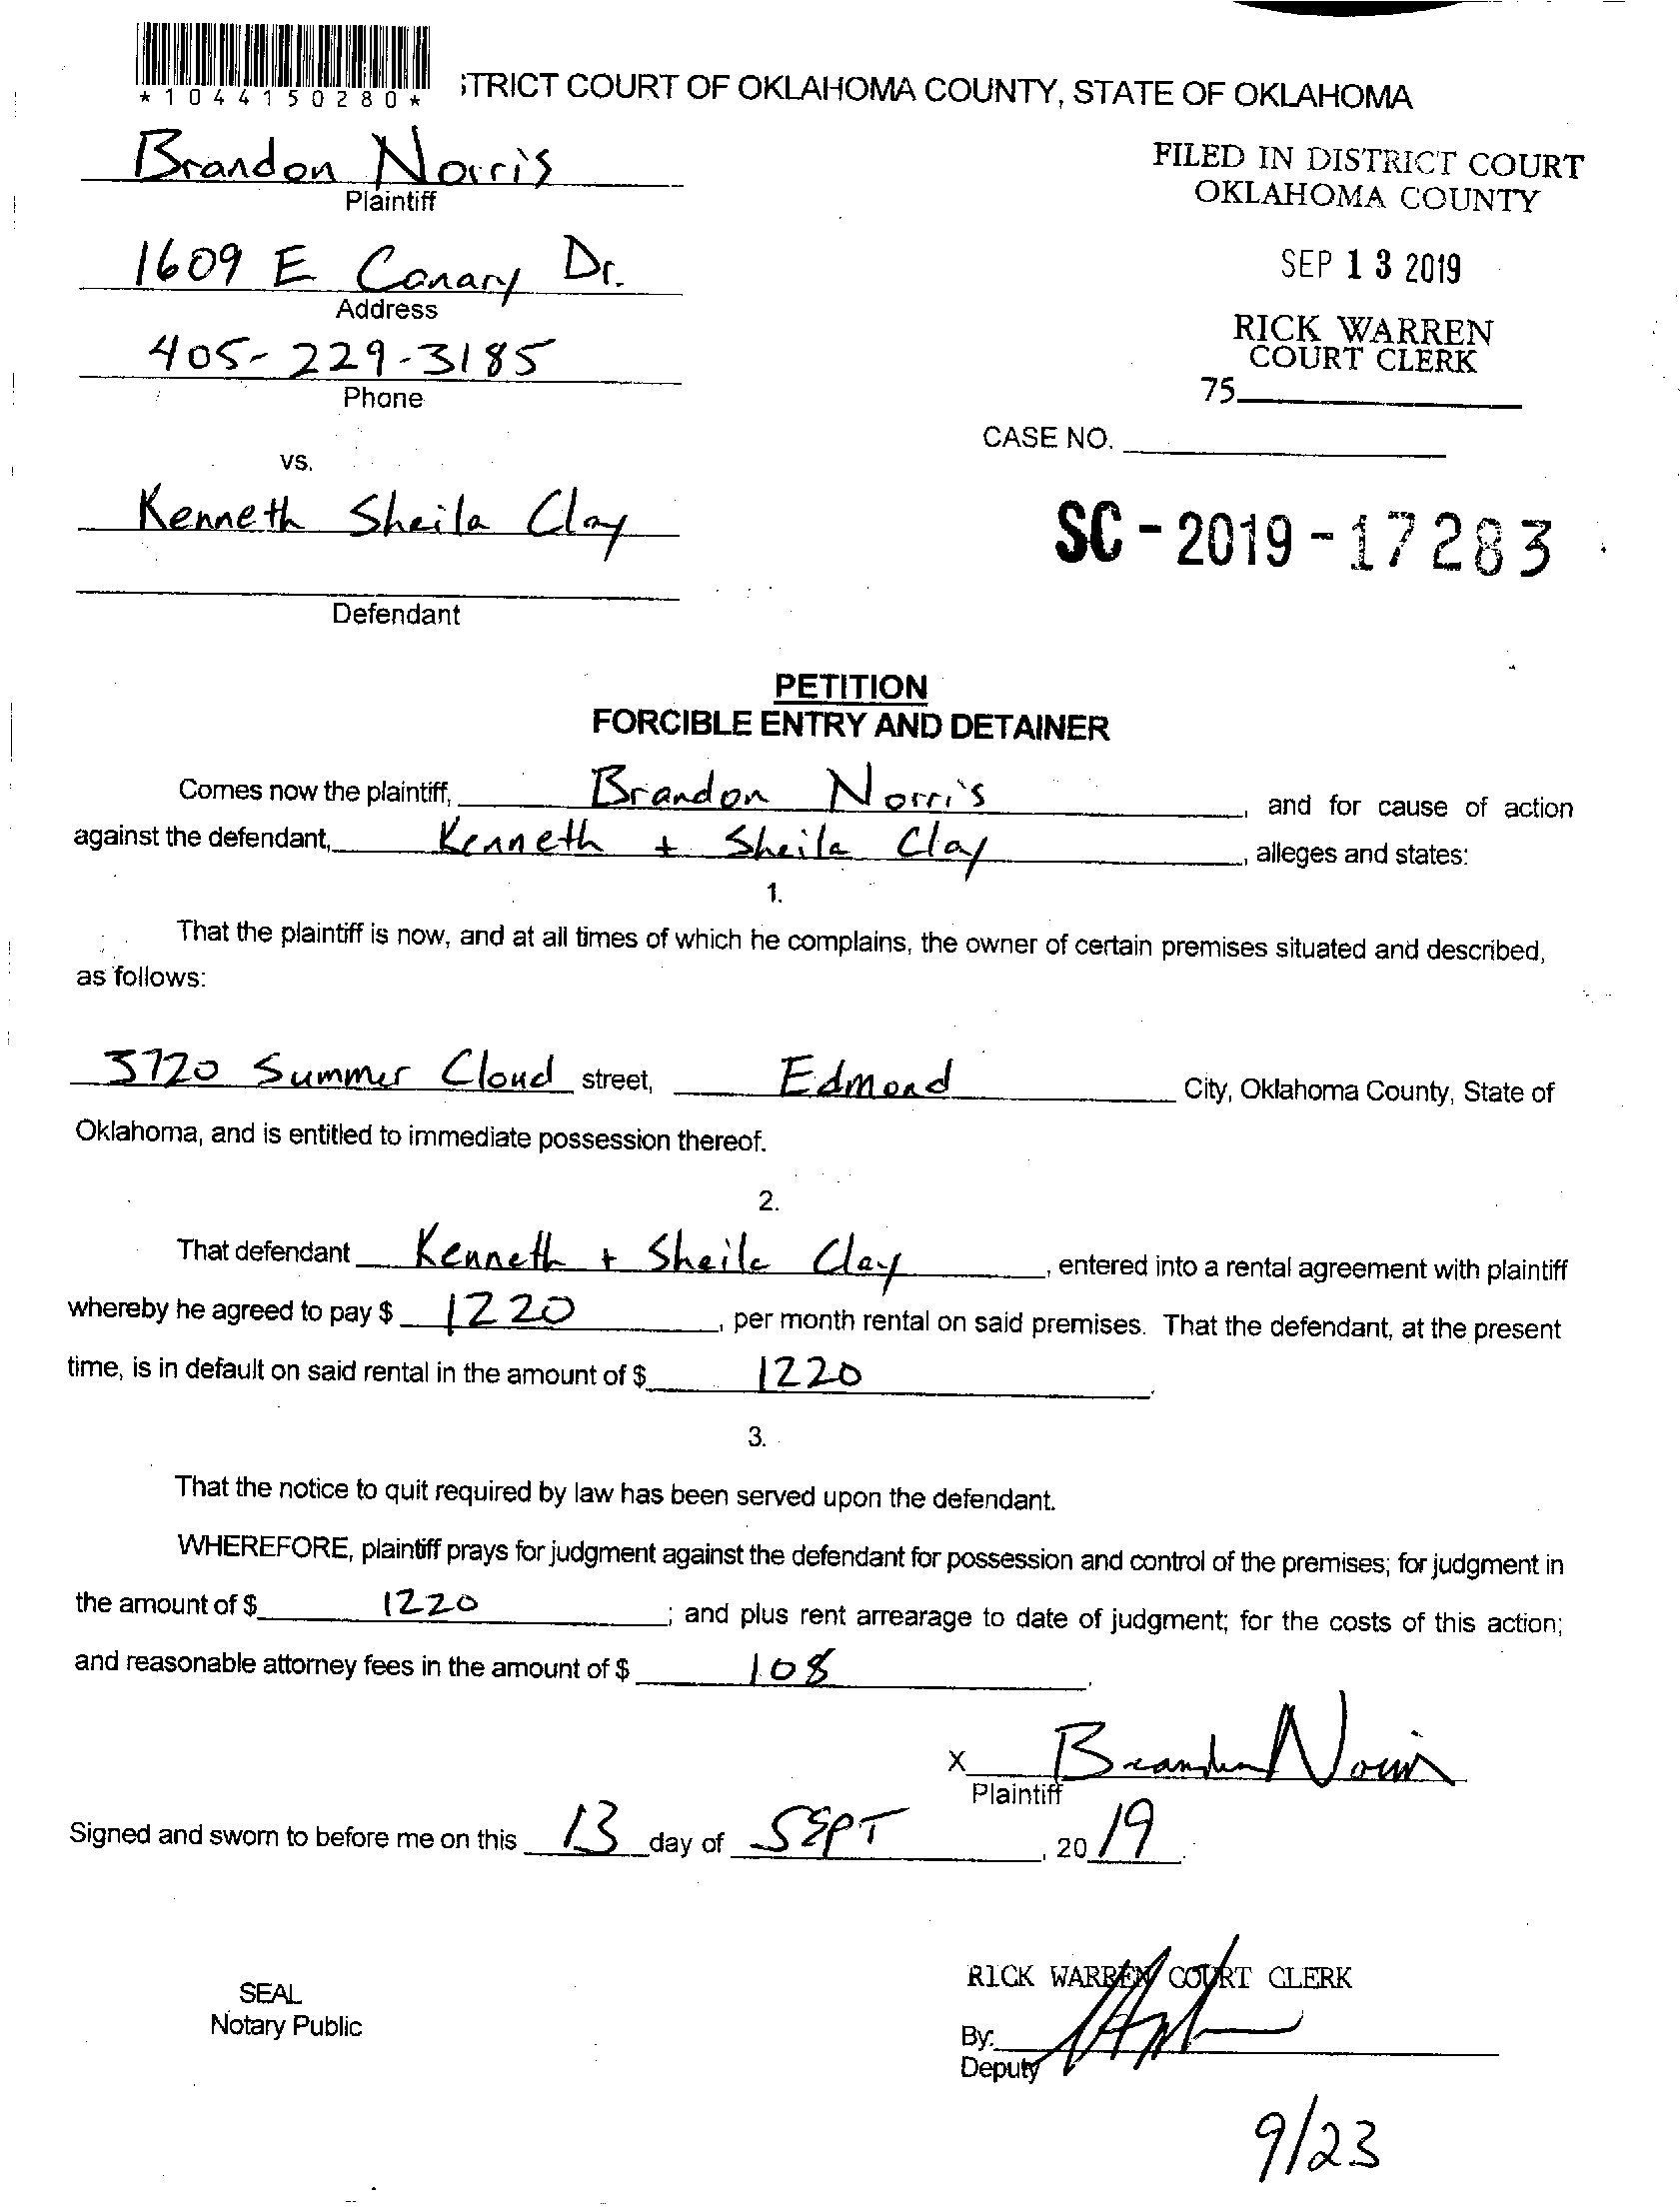 *1044150280*
STRICT COURT OF OKLAHOMA COUNTY, STATE OF OKLAHOMA
Brandon Norris
Plaintiff
FILED IN DISTRICT COURT
OKLAHOMA COUNTY
1609 E Canary Dr.
Address
SEP 13 2019
405-229-3185
Phone
RICK WARREN
COURT CLERK
75
CASE NO.
vs.
Kenneth Sheila Clay
SC-2019-17283
Defendant
PETITION
FORCIBLE ENTRY AND DETAINER
Comes now the plaintiff, Brandon Norris, and for cause of action
against the defendant, Kenneth + Sheila Clay, alleges and states:
1.
That the plaintiff is now, and at all times of which he complains, the owner of certain premises situated and described,
as follows:
3720 Summer Cloud street, Edmond City, Oklahoma County, State of
Oklahoma, and is entitled to immediate possession thereof.
2.
That defendant Kenneth + Sheila Clay, entered into a rental agreement with plaintiff
whereby he agreed to pay $ 1220, per month rental on said premises. That the defendant, at the present
time, is in default on said rental in the amount of $ 1220.
3.
That the notice to quit required by law has been served upon the defendant.
WHEREFORE, plaintiff prays for judgment against the defendant for possession and control of the premises; for judgment in
the amount of $ 1220; and plus rent arrearage to date of judgment; for the costs of this action;
and reasonable attorney fees in the amount of $ 108.
X Brandon Norris
Plaintiff
Signed and sworn to before me on this 13 day of SEPT, 2019.
RICK WARREN COURT CLERK
SEAL
Notary Public
By:
Deputy
9/23